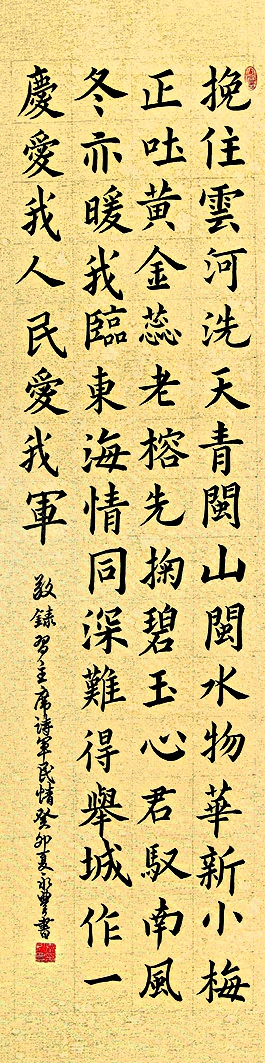 挽住雲河洗天青閩山閩水物華新小梅
正吐黃金蕊老榕先掬碧玉心君馭南風
冬亦暖我臨東海情同深難得舉城作一
慶愛我人民愛我軍
敬錄習主席詩軍民情癸卯夏永豐書